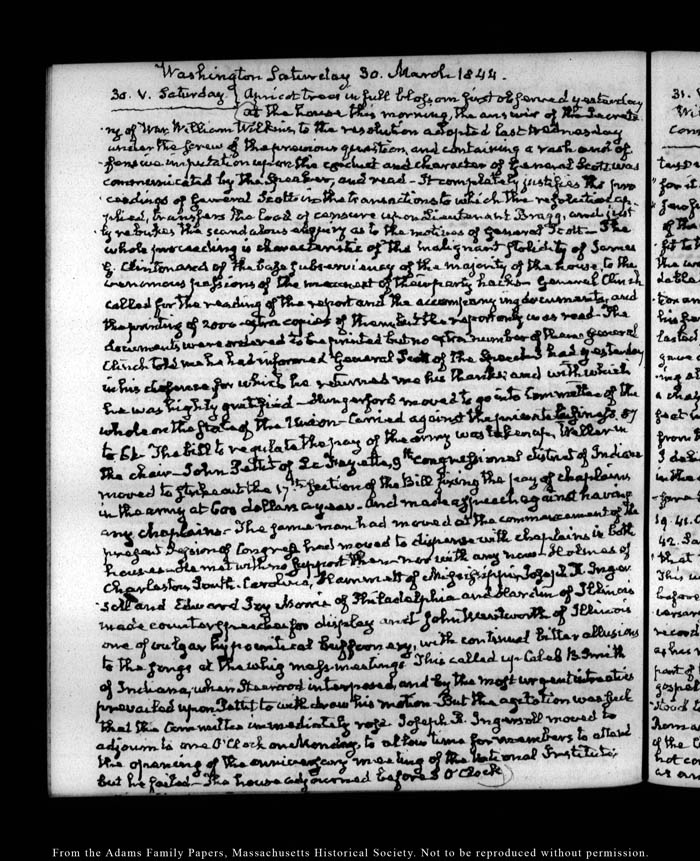 Washington Saturday 30. March 1844.
30. V. Saturday. Apricot trees in full blossom first observed yesterday
At the house this morning, the answer of the Secreta-
ry of War William Wilkins, to the resolution adopted last Wednesday
under the screw of the previous question, and containing a rash and of-
fensive imputation upon the conduct and character of General Scott, was
communicated by the Speaker, and read - It completely justifies the pro-
ceedings of General Scott in the transactions to which the resolution ap-
plied, transfers the load of censure upon Lieutenant Bragg, and just-
ly rebukes the scandalous enquiry as to the motives of General Scott - The
whole proceeding is characteristic of the malignant stolidity of James
G. Clinton and of the base subserviency of the majority of the house, to the
venomous passions of the meanest of their party hacks - General Clinch
called for the reading of the report and the accompanying documents, and
the printing of 2000 extra copies of them but the report only was read - The
documents were ordered to be printed but no extra number of them - General
Clinch told me he had informed General Scott of the Speech I had yesterday
in his defence for which he returned me his thanks; and with which
he was highly gratified - Hungerford moved to go into Committee of the
whole on the state of the Union - Carried against the private business, 87
to 54. The bill to regulate the pay of the army was taken up, Weller in
the chair - John Pettit of La Fayette, 8th Congressional district of Indiana
moved to strike out the 17th Section of the Bill fixing the pay of chaplains
in the army at 600 dollars a year - and made a speech against having
any chaplains. The same man had moved at the commencement of the
present Session of Congress had moved to dispense with chaplains in both
houses - He met with no support then - nor with any now - Holmes of
Charleston South. Carolina, Hammett of Mississippi, Joseph R. Inger-
soll and Edward Joy Morris of Philadelphia and Hardin of Illinois
made counter speeches for display and John Wentworth of Illinois
one of vulgar hypocritical buffoonery, with continual bitter allusions
to the songs at the whig mass-meetings. This called up Caleb B. Smith
of Indiana, when Stewart interposed, and by the most urgent intreaties
prevailed upon Pettit to withdraw his motion - But the agitation was such
that the Committee immediately rose. Joseph R. Ingersoll moved to
adjourn to one O'Clock on Monday, to allow time for members to attend
the opening of the anniversary meeting of the National Institute;
but he failed - The house adjourned before 3 O'Clock
From the Adams Family Papers, Massachusetts Historical Society. Not to be reproduced without permission.